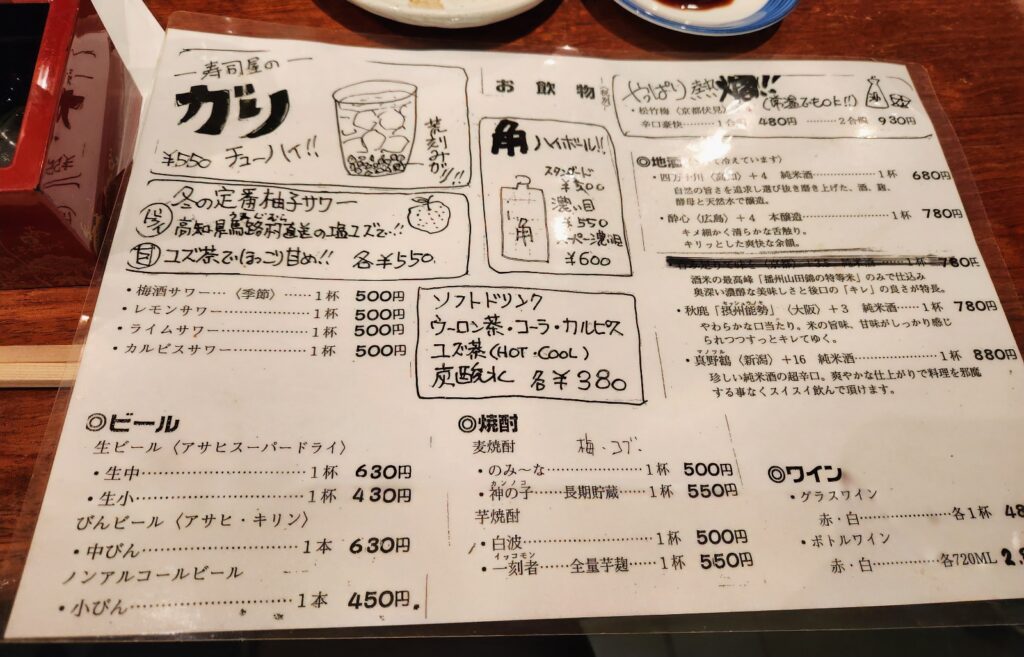 寿司屋の
ガリ
¥550 チューハイ!!
荒刻みガリ!!
冬の定番柚子サワー
高知県馬路村直送の塩ユズで!!
甘 ユズ茶でほっこり甘め!! 各¥550.
・梅酒サワー…〈季節〉……1杯 500円
・レモンサワー……………1杯 500円
・ライムサワー……………1杯 500円
・カルピスサワー…………1杯 500円
お飲物
角 ハイボール!!
スタンダード
¥500
濃い目
¥550
スーパー濃い目
¥600
角
ソフトドリンク
ウーロン茶・コーラ・カルピス
ユズ茶(HOT・COOL)
炭酸水 各¥380
やっぱり熱燗!!
(常温でもOK!!)
酒
・松竹梅〈京都伏見〉
辛口豪快………1合 480円 ………2合 930円
◎地酒
冷えています)
・四万十川〈高知〉+4 純米酒……………1杯 680円
自然の旨さを追求し選び抜き磨き上げた、酒、麹、
酵母と天然水で醸造。
・酔心〈広島〉+4 本醸造……………1杯 780円
キメ細かく清らかな舌触り。
キリッとした爽快な余韻。
780円
酒米の最高峰「播州山田錦の特等米」のみで仕込み
奥深い濃醇な美味しさと後口の「キレ」の良さが特長。
・秋鹿「摂州能勢」〈大阪〉+3 純米酒………1杯 780円
やわらかな口当たり。米の旨味、甘味がしっかり感じ
られつつすっとキレてゆく。
マノヅル
・真野鶴〈新潟〉+16 純米酒……………1杯 880円
珍しい純米酒の超辛口。爽やかな仕上がりで料理を邪魔
する事なくスイスイ飲んで頂けます。
◎ビール
生ビール〈アサヒスーパードライ〉
・生中……………………1杯 630円
・生小……………………1杯 430円
びんビール〈アサヒ・キリン〉
・中びん…………………1本 630円
ノンアルコールビール
・小びん…………………1本 450円
◎焼酎
麦焼酎 梅・コブ
・のみ〜な………………1杯 500円
カンノコ
・神の子……長期貯蔵……1杯 550円
芋焼酎
・白波……………………1杯 500円
イッコモン
・一刻者……全量芋麹……1杯 550円
◎ワイン
・グラスワイン
赤・白………………各1杯 48
・ボトルワイン
赤・白…………各720ML 2.